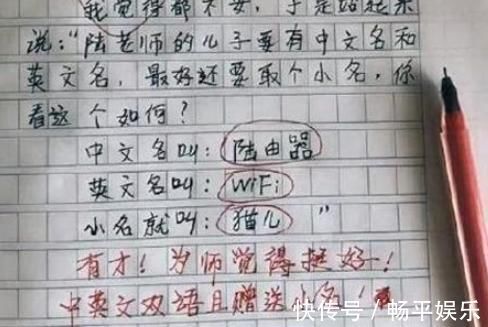 我觉得都不妥，于是站起来
说：“陆老师的儿子要有中文名和
英文名，最好还要取个小名，你
看这个如何？
中文名叫：陆由器
英文名叫：WiFi
小名就叫：猫儿”
有才！为师觉得挺好！
中英文双语且赠送小名！
快传号 / 畅平娱乐